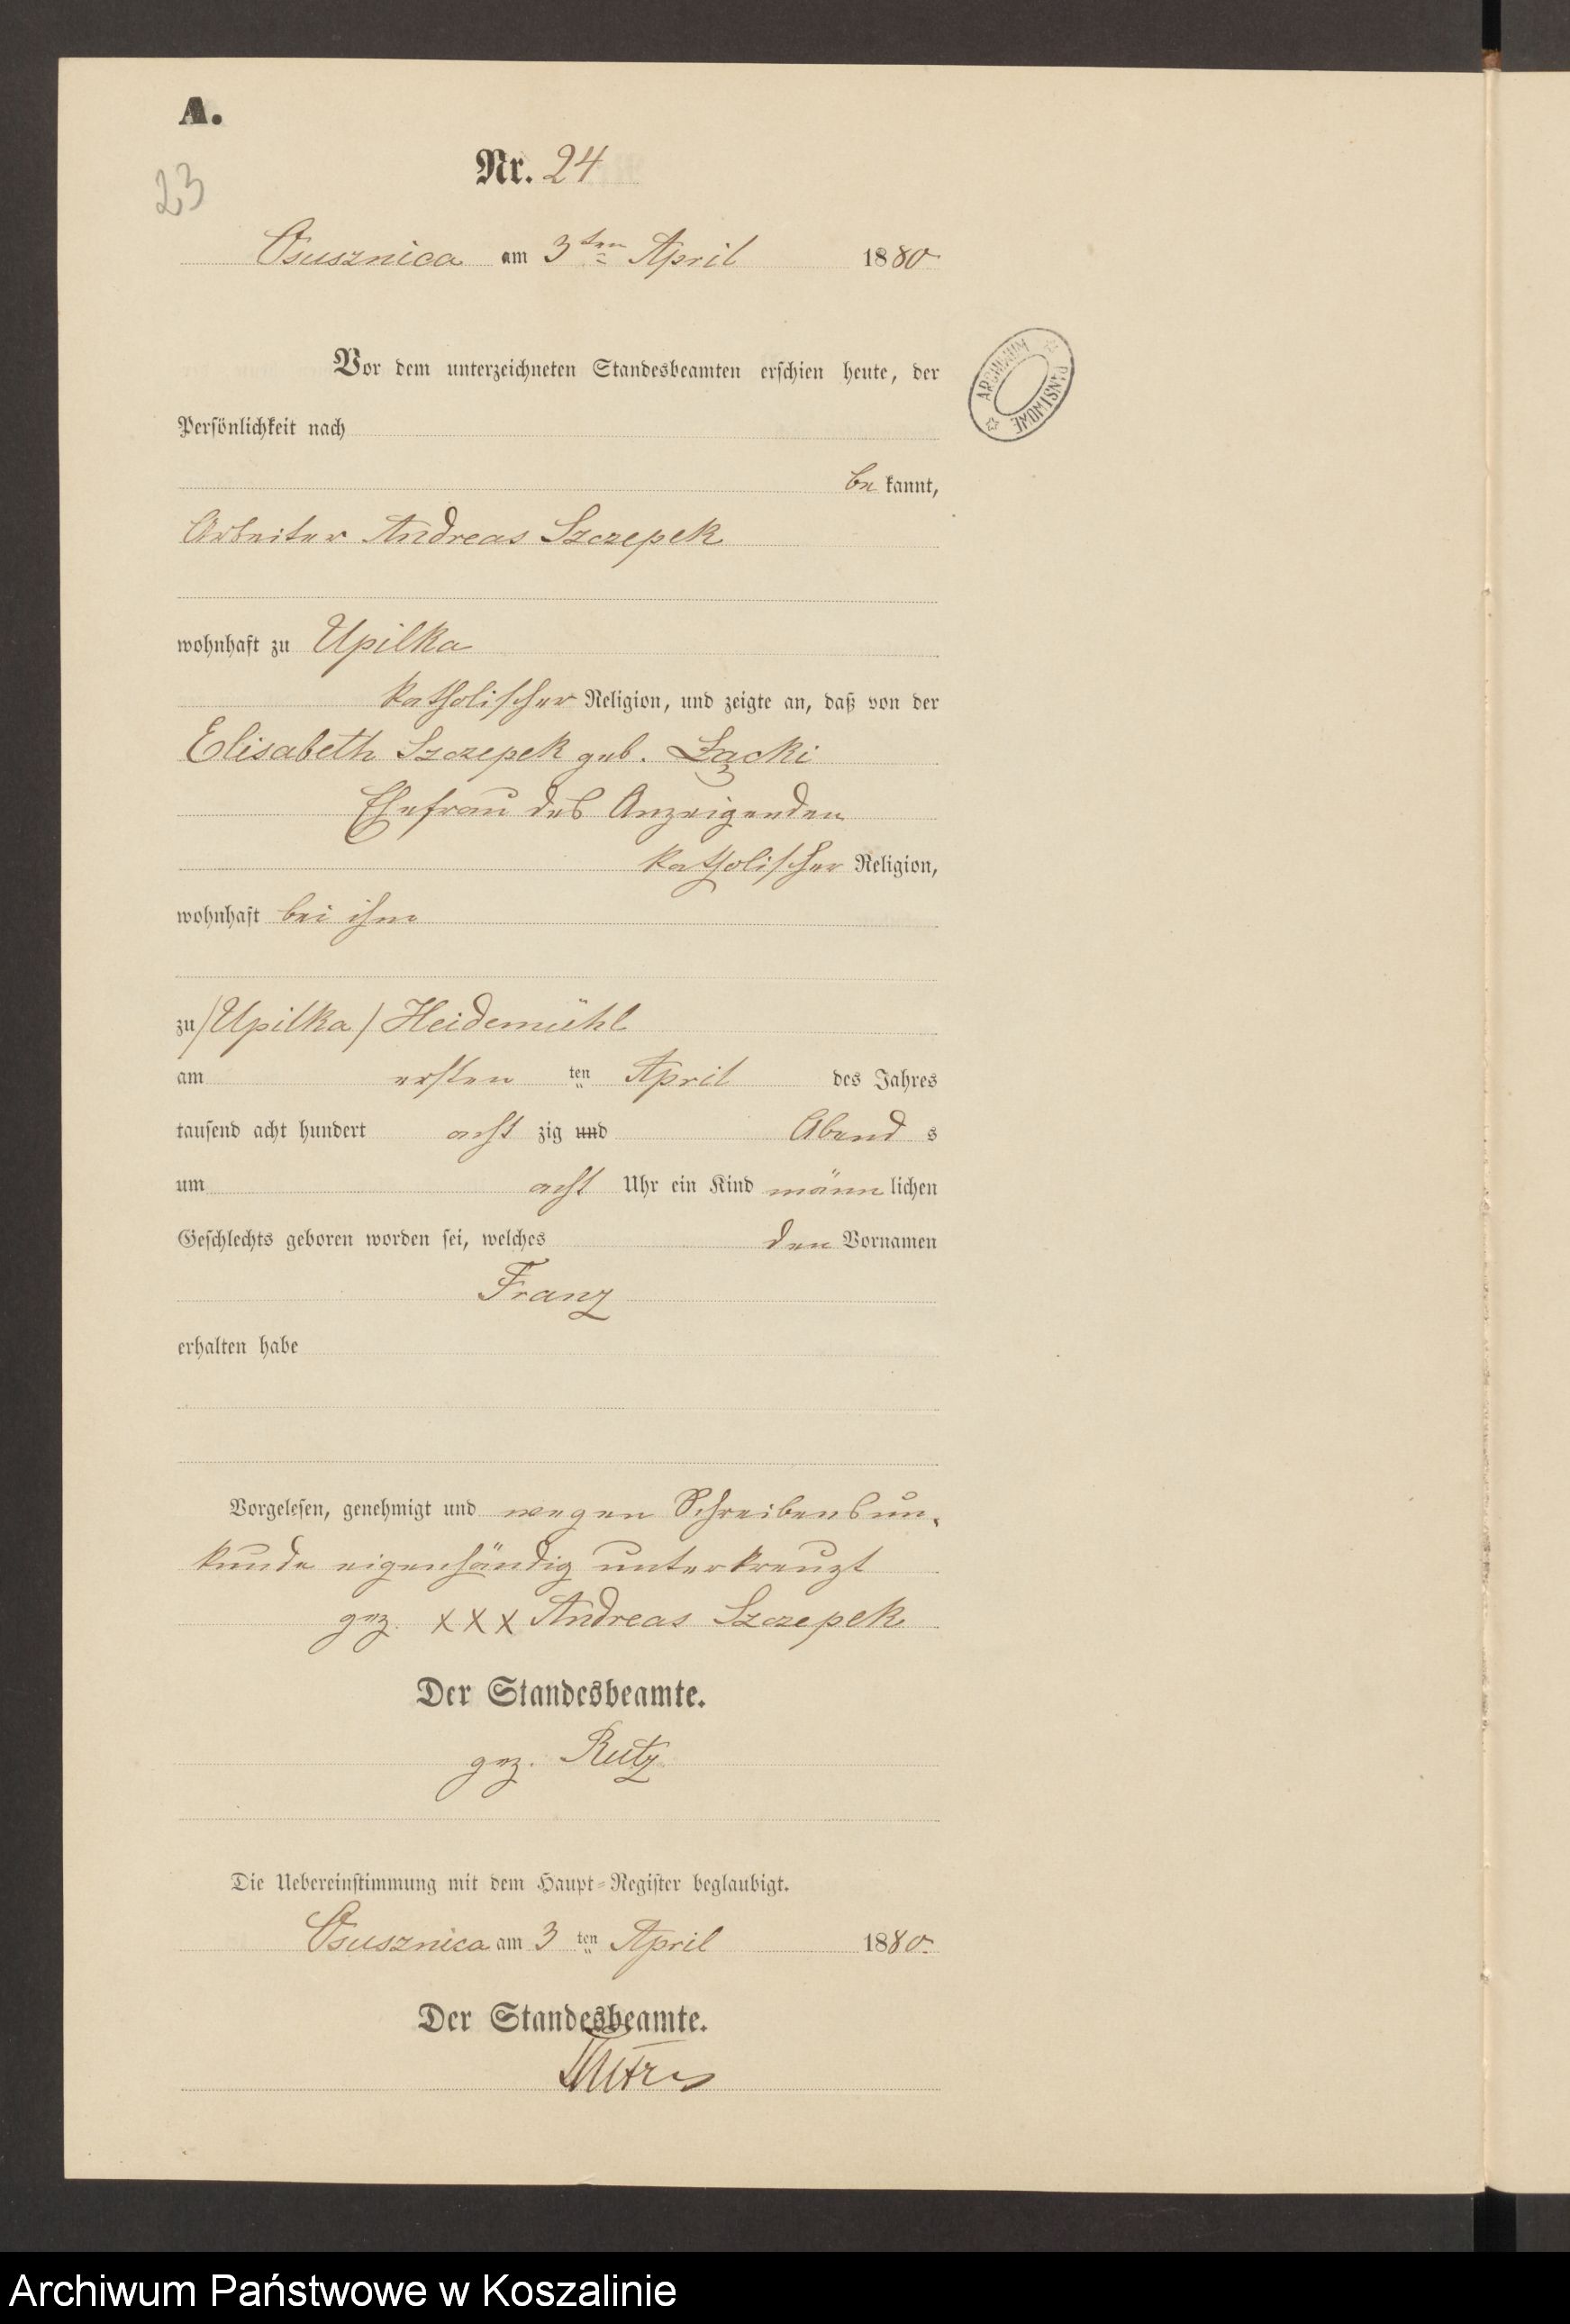 A.
Nr. 24
23
Osusznica am 3ten April 1880
ARCHIWUM PAŃSTWOWE
Vor dem unterzeichneten Standesbeamten erschien heute, der
Persönlichkeit nach
be kannt,
Arbeiter Andreas Szczepek
wohnhaft zu Upilka
katholischer Religion, und zeigte an, daß von der
Elisabeth Szczepek geb. Łącki
Ehefrau des Anzeigenden
katholischer Religion,
wohnhaft bei ihm
zu /Upilka/ Heidemühl
am ersten ten April des Jahres
tausend acht hundert acht zig und Abend s
um acht Uhr ein Kind männ lichen
Geschlechts geboren worden sei, welches den Vornamen
Franz
erhalten habe
Vorgelesen, genehmigt und wegen Schreibensun-
kunde eigenhändig unterkreuzt
gez. XXX Andreas Szczepek
Der Standesbeamte.
gez. Rutz
Die Uebereinstimmung mit dem Haupt-Register beglaubigt.
Osusznica am 3 ten April 1880.
Der Standesbeamte.
Archiwum Państwowe w Koszalinie